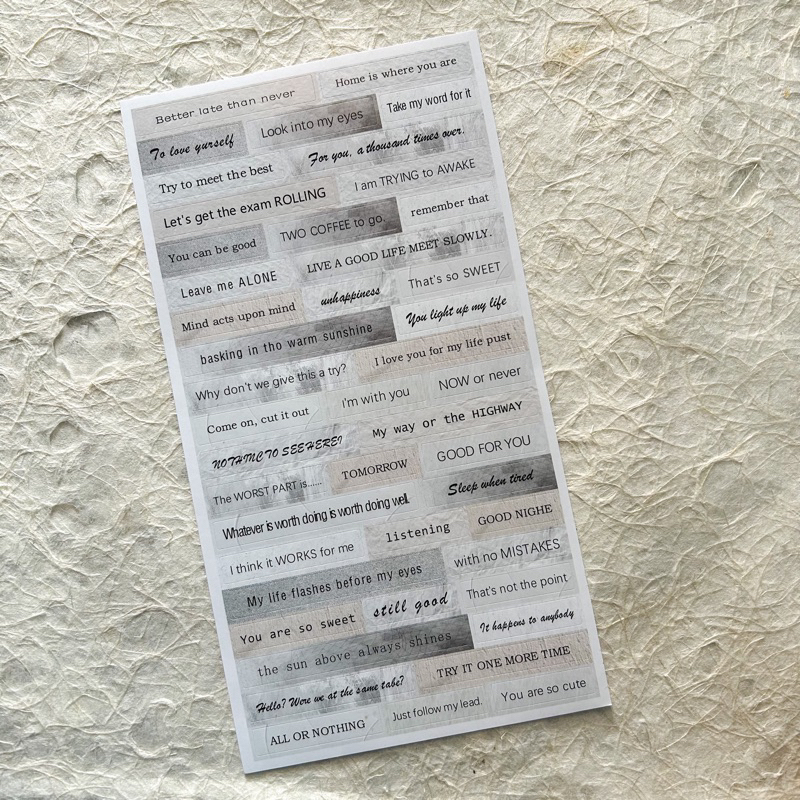 Better late than never
Home is where you are
To love yurself
Look into my eyes
Take my word for it
Try to meet the best
For you, a thousand times over.
Let's get the exam ROLLING
I am TRYING to AWAKE
You can be good
TWO COFFEE to go.
remember that
Leave me ALONE
LIVE A GOOD LIFE MEET SLOWLY.
Mind acts upon mind
unhappiness
That's so SWEET
basking in tho warm sunshine
You light up my life
Why don't we give this a try?
I love you for my life pust
Come on, cut it out
I'm with you
NOW or never
NOTHINC TO SEE HEREI
My way or the HIGHWAY
The WORST PART is......
TOMORROW
GOOD FOR YOU
Whatever is worth doing is worth doing well.
Sleep when tired
I think it WORKS for me
listening
GOOD NIGHE
My life flashes before my eyes
with no MISTAKES
You are so sweet
still good
That's not the point
the sun above always shines
It happens to anybody
Hello? Were we at the same tabe?
TRY IT ONE MORE TIME
ALL OR NOTHING
Just follow my lead.
You are so cute